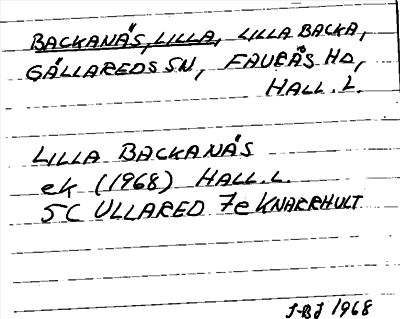 BACKANÄS, LILLA, LILLA BACKA,
GÄLLAREDS SN, FAURÅS HD,
HALL. L.
LILLA BACKANÄS
ek (1968) HALL. L.
5C ULLARED 7e KNARRHULT
J-BJ 1968